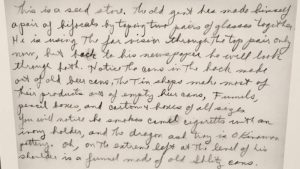 This is a seed store. The old gent has made himself
a pair of bifocals by taping two pairs of glasses together.
He is using the far vision through the top pair only
now, but back to his newspaper he will look
through both. Notice the cans in the back made
out of old beer cans. The Tin shops made most of
their products out of empty beer cans, Funnels,
pencil boxes, and cartons & boxes of all sizes
You will notice he smokes camel cigarettes with an
ivory holder, and the dragon ash tray is Okinawan
pottery. Oh, on the extreme left at the level of his
shoulder is a funnel made of old Schlitz cans.